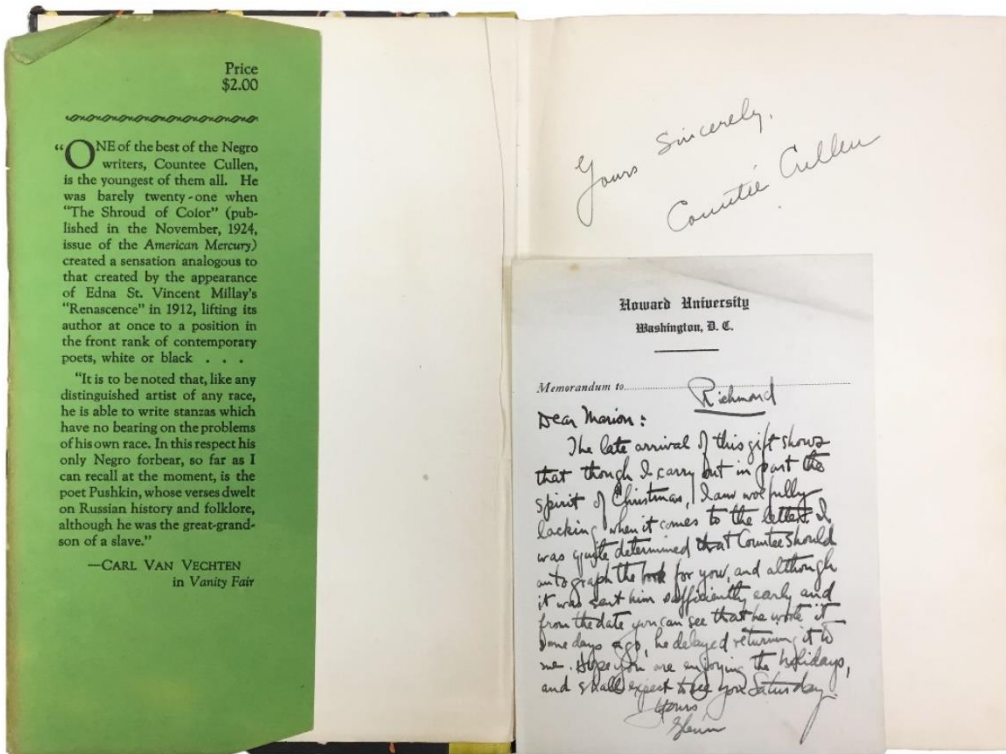 Price
$2.00
“ONE of the best of the Negro
writers, Countee Cullen,
is the youngest of them all. He
was barely twenty-one when
“The Shroud of Color” (pub-
lished in the November, 1924,
issue of the American Mercury)
created a sensation analogous to
that created by the appearance
of Edna St. Vincent Millay’s
“Renascence” in 1912, lifting its
author at once to a position in
the front rank of contemporary
poets, white or black . . .
“It is to be noted that, like any
distinguished artist of any race,
he is able to write stanzas which
have no bearing on the problems
of his own race. In this respect his
only Negro forbear, so far as I
can recall at the moment, is the
poet Pushkin, whose verses dwelt
on Russian history and folklore,
although he was the great-grand-
son of a slave.”
—CARL VAN VECHTEN
in Vanity Fair
Yours Sincerely,
Countée Cullen
Howard University
Washington, D. C.
Memorandum to
Richmond
Dear Marion:
The late arrival of this gift shows
that though I carry out in part the
spirit of Christmas, I am woefully
lacking when it comes to the letter. I
was quite determined that Countee should
autograph the book for you, and although
it was sent him sufficiently early and
from the date you can see that he wrote it
some days ago, he delayed returning it to
me. Hope you are enjoying the holidays,
and shall expect to see you Saturday.
Yours